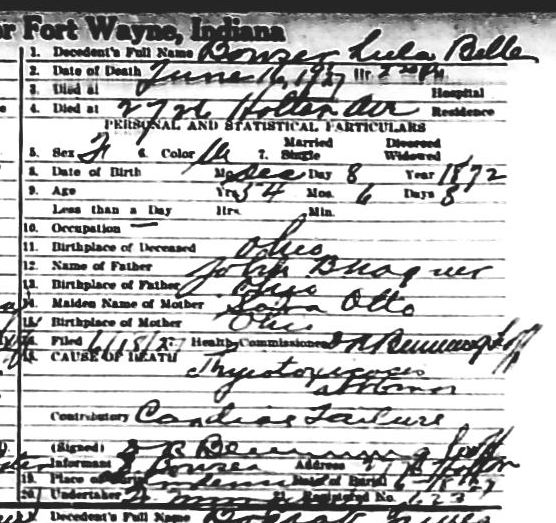 or Fort Wayne, Indiana
1. Decedent's Full Name Bowser Lula Belle
2. Date of Death June 16, 1927 Hr.
3. Died at Hospital
4. Died at 2726 Holton Ave Residence
PERSONAL AND STATISTICAL PARTICULARS
5. Sex F 6. Color W 7. Married Single Divorced Widowed
8. Date of Birth Mo. Dec Day 8 Year 1872
9. Age Yrs. 54 Mos. 6 Days 8
Less than a Day Hrs. Min.
10. Occupation —
11. Birthplace of Deceased Ohio
12. Name of Father John
13. Birthplace of Father Ohio
14. Maiden Name of Mother Otto
15. Birthplace of Mother Ohio
Filed 6/18/27 Health Commissioner
CAUSE OF DEATH Thyrotoxicosis
Contributory Cardiac Failure
(Signed)
Informant Bowser Address Holton
19. Place of Burial Date of Burial
20. Undertaker Registered No. 623
Decedent's Full Name